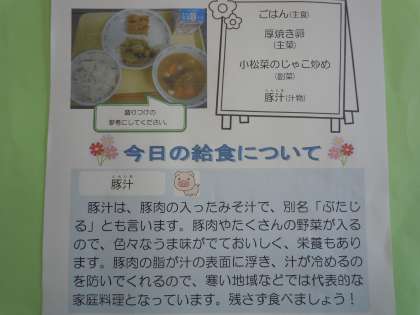 ごはん(主食)
厚焼き卵
(主菜)
小松菜のじゃこ炒め
(副菜)
とんじる
豚汁(汁物)
盛りつけの
参考にしてください。
今日の給食について
とんじる
豚汁
豚汁は、豚肉の入ったみそ汁で、別名「ぶたじ
る」とも言います。豚肉やたくさんの野菜が入る
ので、色々なうま味がでておいしく、栄養もあり
ます。豚肉の脂が汁の表面に浮き、汁が冷めるの
を防いでくれるので、寒い地域などでは代表的な
家庭料理となっています。残さず食べましょう！